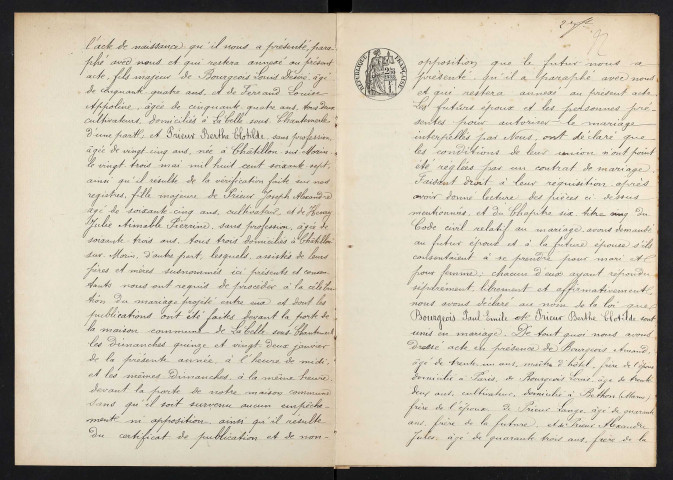 l'acte de naissance qu'il nous a présenté, para-
phé avec nous et qui restera annexé au présent
acte, fils majeur de Bourgeois Louis Désiré, âgé
de cinquante quatre ans, et de Ferrand Louise
Appoline, âgée de cinquante quatre ans, tous deux
cultivateurs, domiciliés à La Celle sous Chantemerle
d'une part, et Prieux Berthe Clotilde, sans profession
âgée de vingt cinq ans, née à Châtillon sur Morin
le vingt trois mai mil huit cent soixante sept,
ainsi qu'il résulte de la vérification faite sur nos
registres, fille majeure de Prieux Joseph Alexandre
âgé de soixante cinq ans, cultivateur, et de Henry
Julie Aimable Pierrine, sans profession, âgée de
soixante trois ans, tous trois domiciliés à Châtillon
sur Morin, d'autre part, lesquels, assistés de leurs
pères et mères susnommés ici présents et consen-
tants nous ont requis de procéder à la célébra-
tion du mariage projeté entre eux et dont les
publications ont été faites devant la porte de
la maison commune de La Celle sous Chantemerle
les Dimanches quinze et vingt deux janvier
de la présente année, à l'heure de midi
et les mêmes Dimanches, à la même heure
devant la porte de notre maison commune
sans qu'il soit survenu aucun empêche-
ment ni opposition, ainsi qu'il résulte
du certificat de publication et de non-
92
RÉPUBLIQUE FRANÇAISE
opposition que le futur nous a
présenté, qu'il a paraphé avec nous
et qui restera annexé au présent acte.
Les futurs époux et les personnes pré-
sentes pour autoriser le mariage
interpellés par Nous, ont déclaré que
les conditions de leur union n'ont point
été réglées par un contrat de mariage.
Faisant droit à leur réquisition après
avoir donné lecture des pièces ci dessus
mentionnées et du Chapitre six titre cinq du
Code civil relatif au mariage, avons demandé
au futur époux et à la future épouse s'ils
consentaient à se prendre pour mari et
pour femme; chacun d'eux ayant répondu
séparément, librement et affirmativement
nous avons déclaré au nom de la loi que
Bourgeois Paul Emile et Prieux Berthe Clotilde sont
unis en mariage. De tout quoi nous avons
dressé acte en présence de Bourgeois Amand,
âgé de trente un ans, maître d'hôtel, frère de l'époux
domicilié à Paris, de Bourgeois Louis, âgé de trente
deux ans, cultivateur, domicilié à Bethon (Marne)
frère de l'époux, de Prieux âgé de quarante
ans, frère de la future, et de Prieux Alexandre
Jules, âgé de quarante trois ans, frère de la